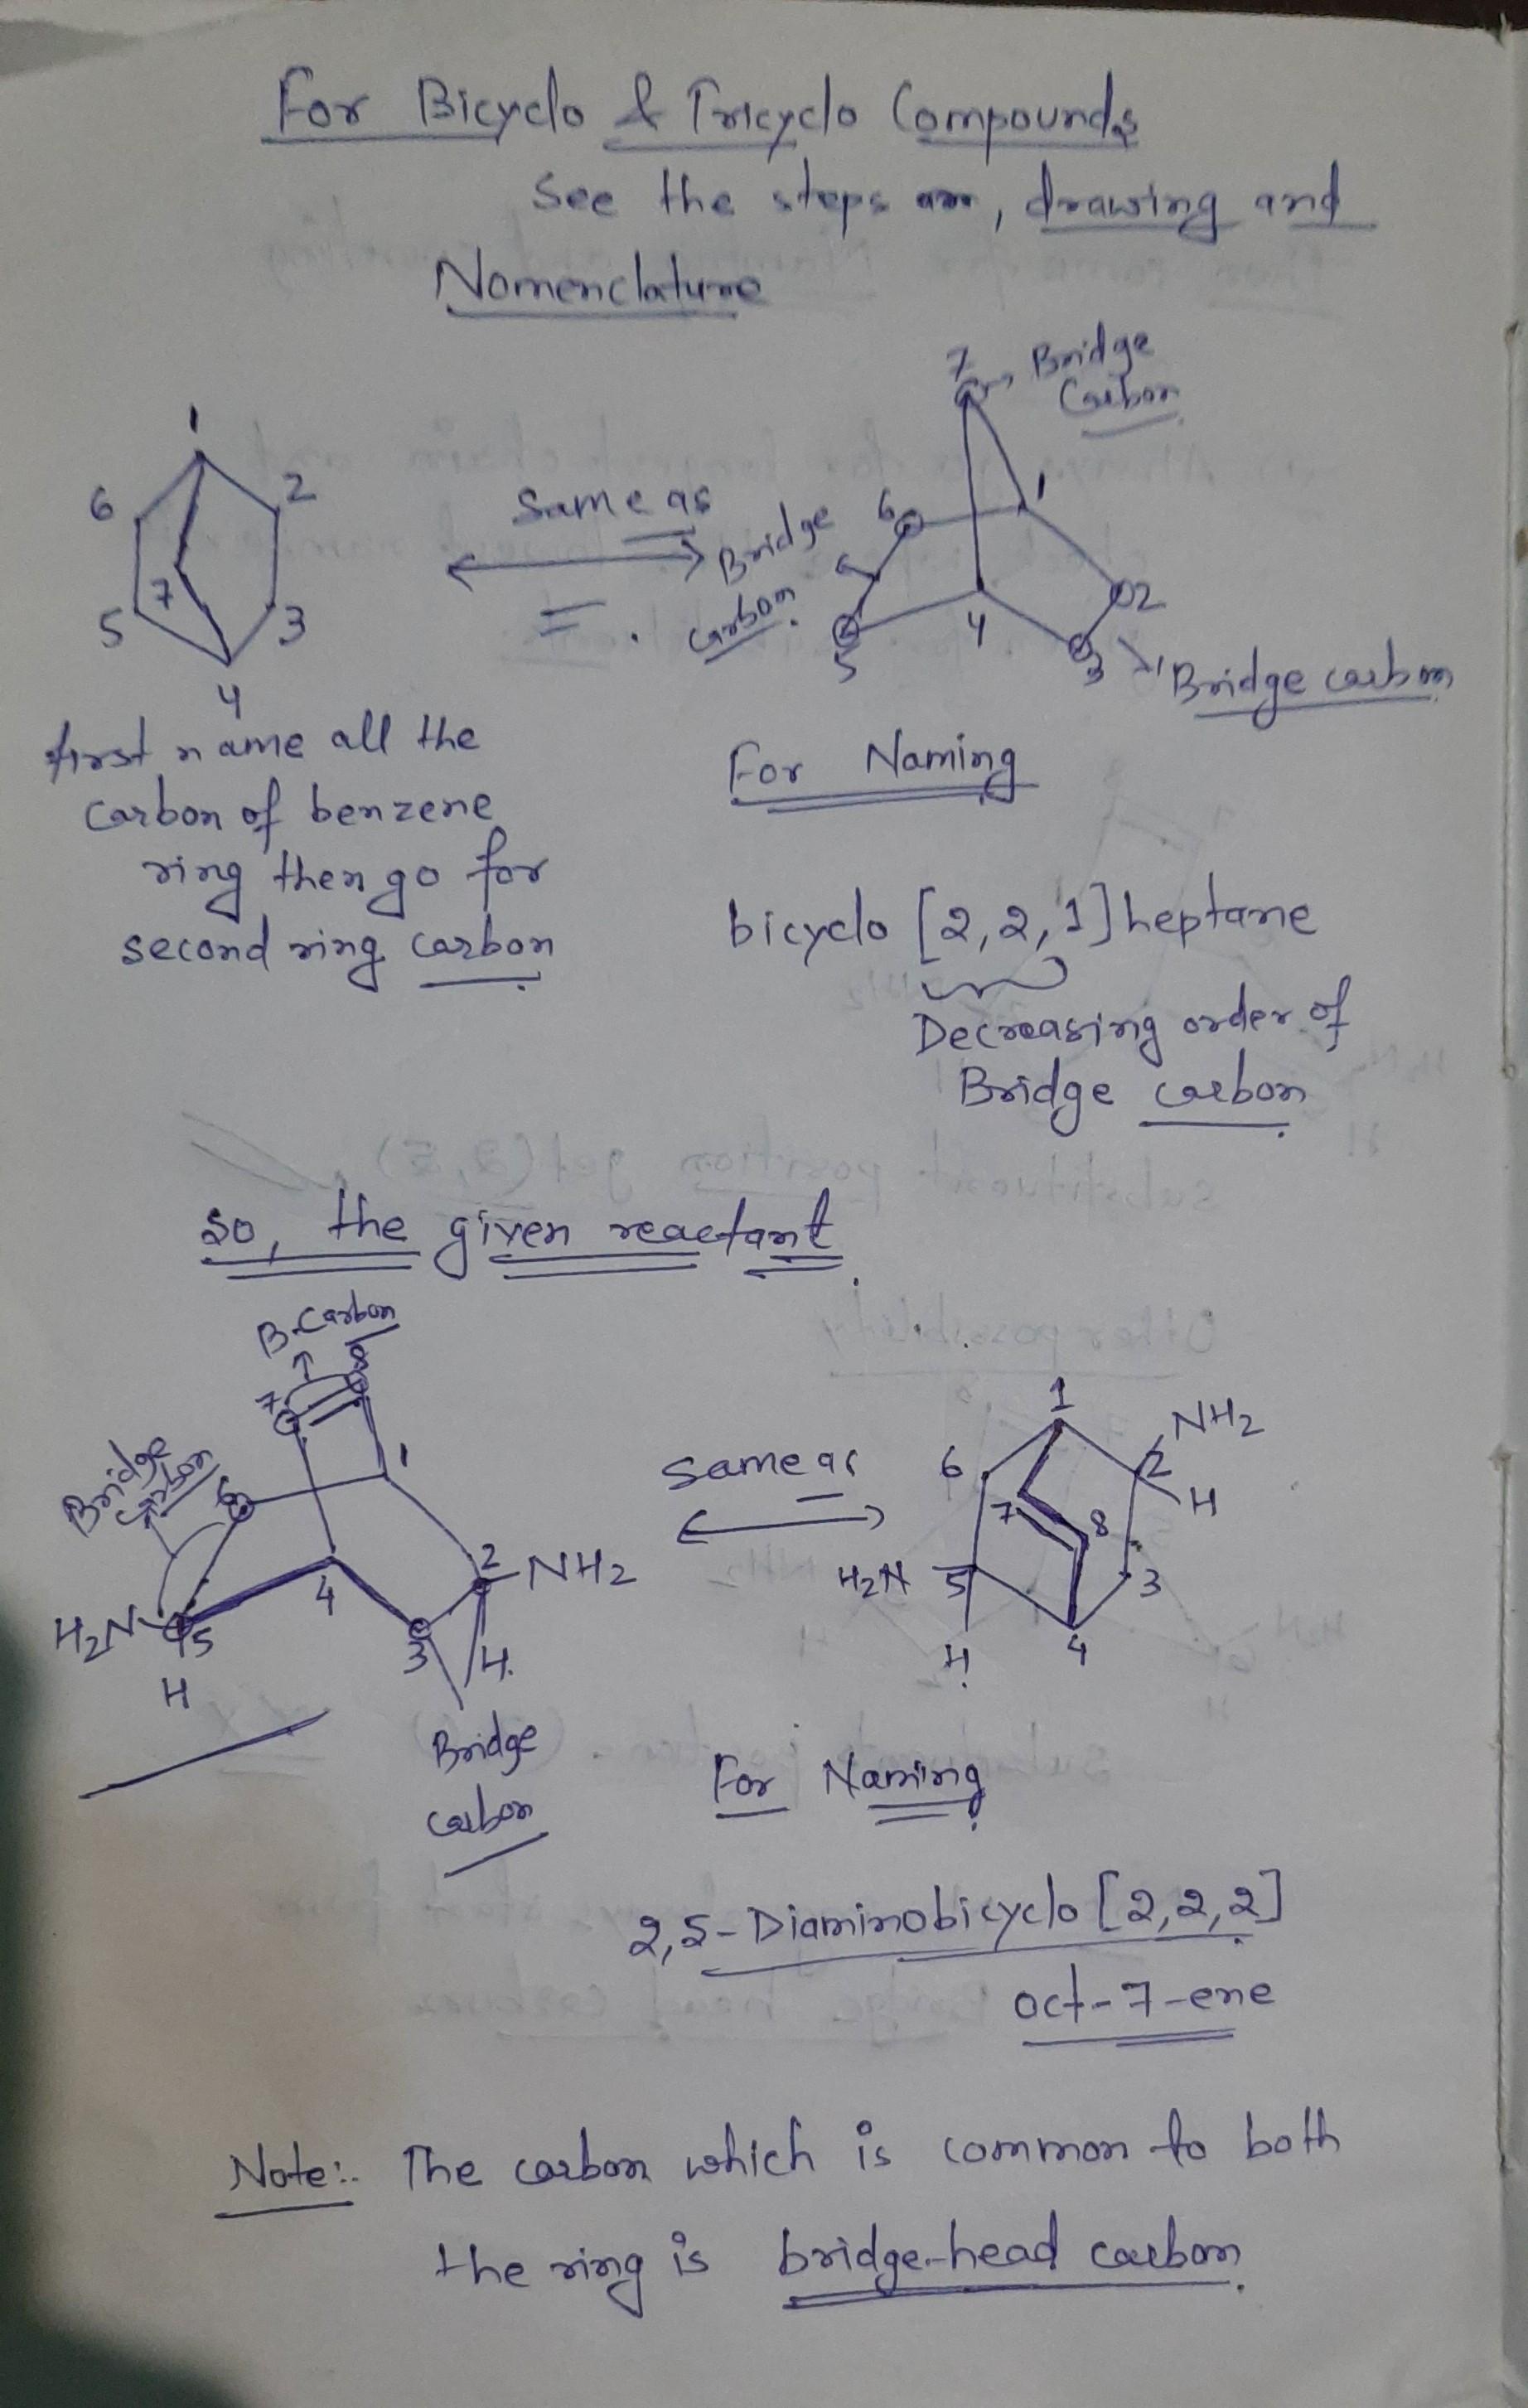 For Bicyclo & Tricyclo Compounds
See the steps are, drawing and
Nomenclature
7 Bridge
Carbon
1
6 2
7
5 3
4
same as
=.
Bridge
carbon
6 1
2
4
5 3 Bridge carbon
first name all the
carbon of benzene
ring then go for
second ring carbon
For Naming
bicyclo [2,2,1] heptane
Decreasing order of
Bridge carbon
So, the given reactant.
B.Carbon
8
7
Bridge
carbon
6 1
2 NH2
4
H2N 5 3 H.
H
Bridge
carbon
same as
1
NH2
6 2
7 8 H
H2N 5 3
H 4
For Naming
2,5-Diaminobicyclo [2,2,2]
oct-7-ene
Note:. The carbon which is common to both
the ring is bridge-head carbon.